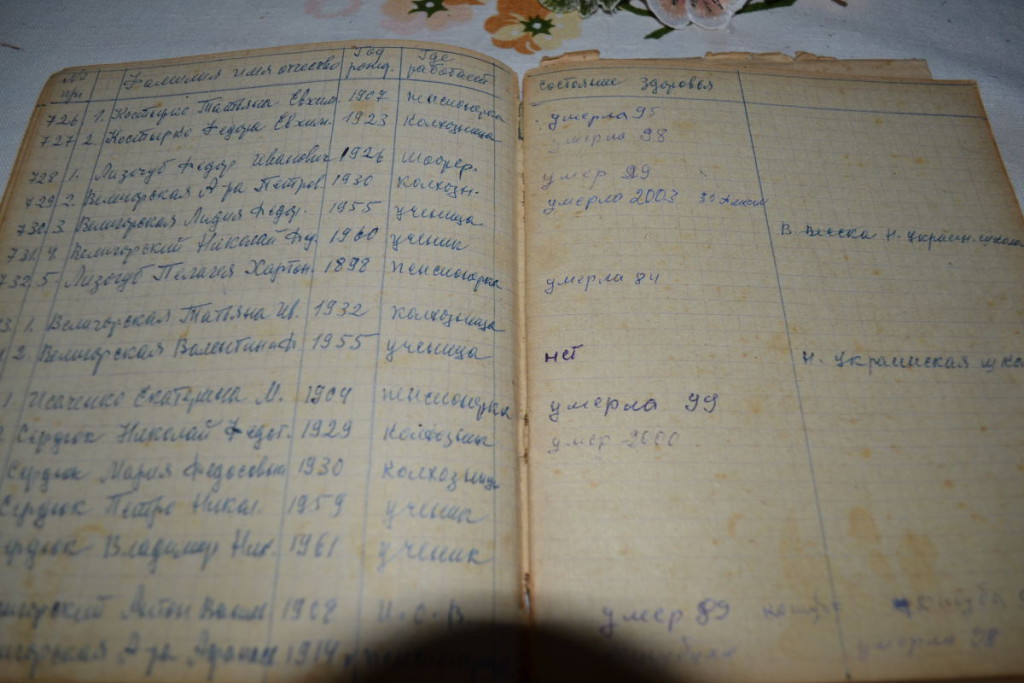 № Фамилия имя отчество Год рожд. Где работает Состояние здоровья
726 1. Костырко Татьяна Евхим. 1907 пенсионерка умерла 95
727 2. Костырко Федора Евхим. 1923 колхозница умерла 98
728 1. Лизогуб Федор Иванович 1926 шофер. умер 99
729 2. Велигорская А-ра Петров. 1930 колхозн. умерла 2003
730 3. Велигорская Лидия Федор. 1955 ученица В. Н. Украин. школа
731 4. Велигорський Николай Фед. 1960 ученик
732 5. Лизогуб Пелагия Харитон. 1898 пенсионерка умерла 84
1. Велигорская Татьяна Ив. 1932 колхозница
2. Велигорская Валентина Ф. 1955 ученица нет Н. Украинская шко
1. Исаченко Екатерина М. 1904 пенсионерка умерла 99
Сердюк Николай Федот. 1929 колхозник умер 2000
Сердюк Мария Федосовна 1930 колхозница
Сердюк Петро Никол. 1959 ученик
ердюк Владимир Ник. 1961 ученик
игорский Антон 1908 И. О. В. умер 89
игорская А-ра 1914 умерла 98